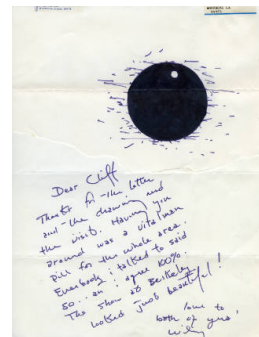 Dear Cliff
Thanks for the letter
and the drawing and
the visit. Having you
around was a vitamin
pill for the whole area.
Everybody i talked to said
so.. an i agree 100%.
The show at Berkeley
looked just beautiful!
love to
both of you,